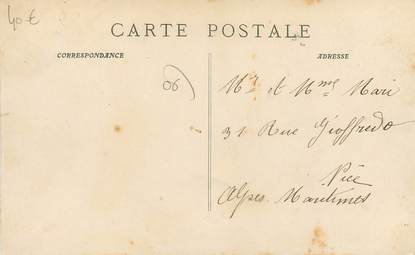 40 €
CARTE POSTALE
CORRESPONDANCE
ADRESSE
06
Mr et Mme Mari
31 Rue Gioffredo
Nice
Alpes Maritimes